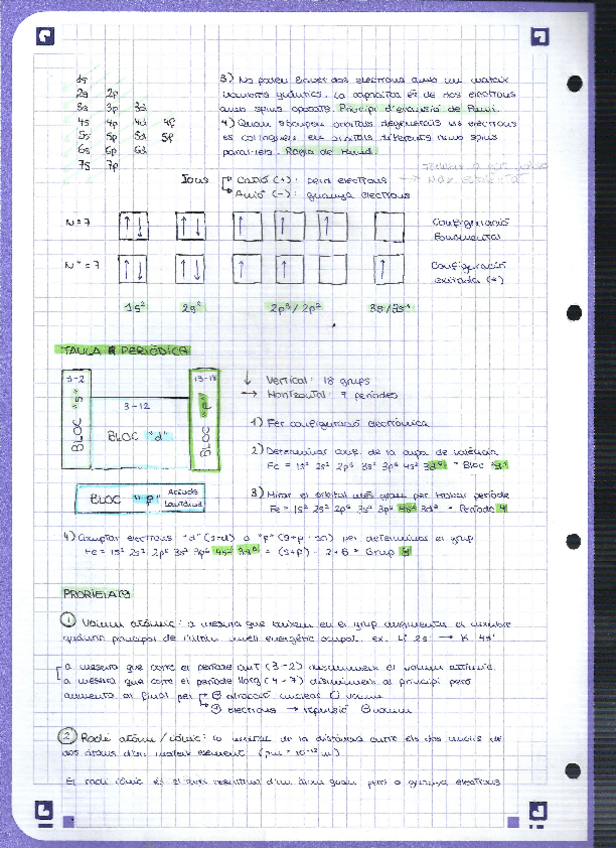 1s
2s 2p
3s 3p 3d
4s 4p 4d 4f
5s 5p 5d 5f
6s 6p 6d
7s 7p
3) No poden haver dos electrons amb un mateix
quàntics. La capacitat és de dos electrons
amb spins oposats. Principi d'exclusió de Pauli.
4) Quan s'ocupen orbitals degenerats els electrons
es col·loquen en orbitals diferents amb spins
paral·lels. Regla de Hund.
Ions Catió (+): perd electrons
Anió (-): guanya electrons
N=7 Configuració
fonamental
N*=7 Configuració
excitada (*)
1s² 2s² 2p³/2p² 3s/3s¹
TAULA PERIÒDICA
1-2 13-18
3-12
BLOC "s" BLOC "d" BLOC "p"
BLOC "f"
↓ Vertical: 18 grups
→ Horitzontal: 7 períodes
1) Fer configuració electrònica
2) Determinar conf. de la capa de valència
Fe = 1s² 2s² 2p⁶ 3s² 3p⁶ 4s² 3d⁶ Bloc
3) Mirar el orbital més gran per trobar període
Fe = 1s² 2s² 2p⁶ 3s² 3p⁶ 4s² 3d⁶ = Període 4
4) Comptar electrons "d" (s+d) o "p" per determinar el grup
Fe = 1s² 2s² 2p⁶ 3s² 3p⁶ 4s² 3d⁶ = 2+6 = Grup 8
PROPIETATS
1 Volum atòmic: a mesura que baixem en el grup augmenta el nombre
quàntic principal de l'últim nivell energètic ocupat. ex. Li 2s¹ → K 4s¹
a mesura que corre el període curt disminueix el volum atòmic.
a mesura que corre el període llarg (4-7) disminueix al principi però
augmenta al final per atracció nuclear volum
electrons → repulsió volum
2 Radi atòmic/iònic: la meitat de la distància entre els dos nuclis de
dos àtoms d'un mateix element
El radi iònic és el radi d'un àtom quan perd o guanya electrons